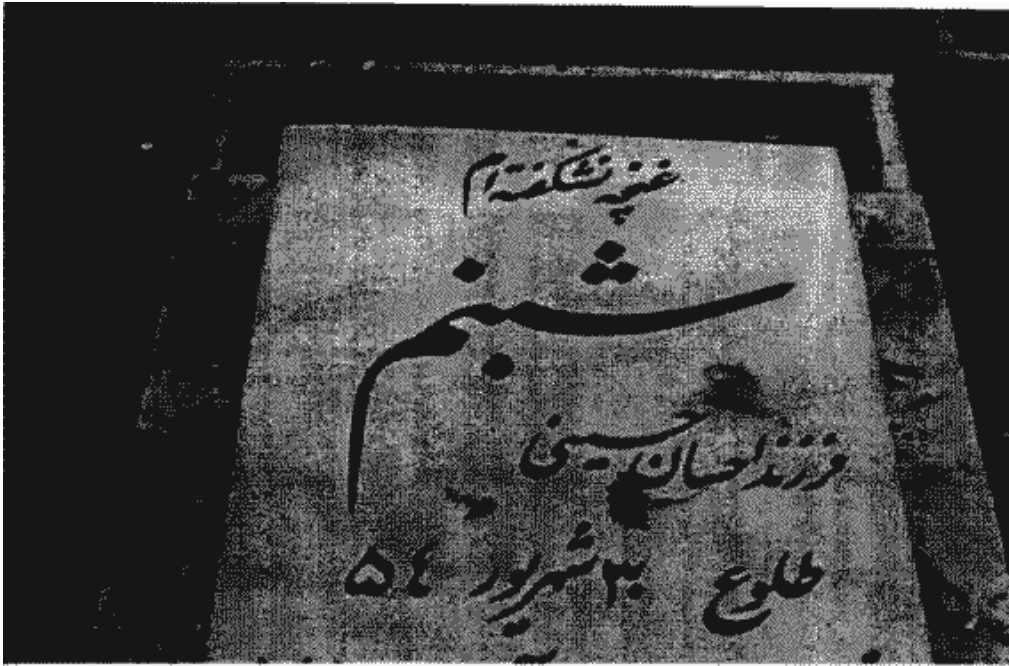 غنچه نشکفته ام
شبنم
فرزند احسان حسینی
طلوع ۳۰ شهریور ۵۴